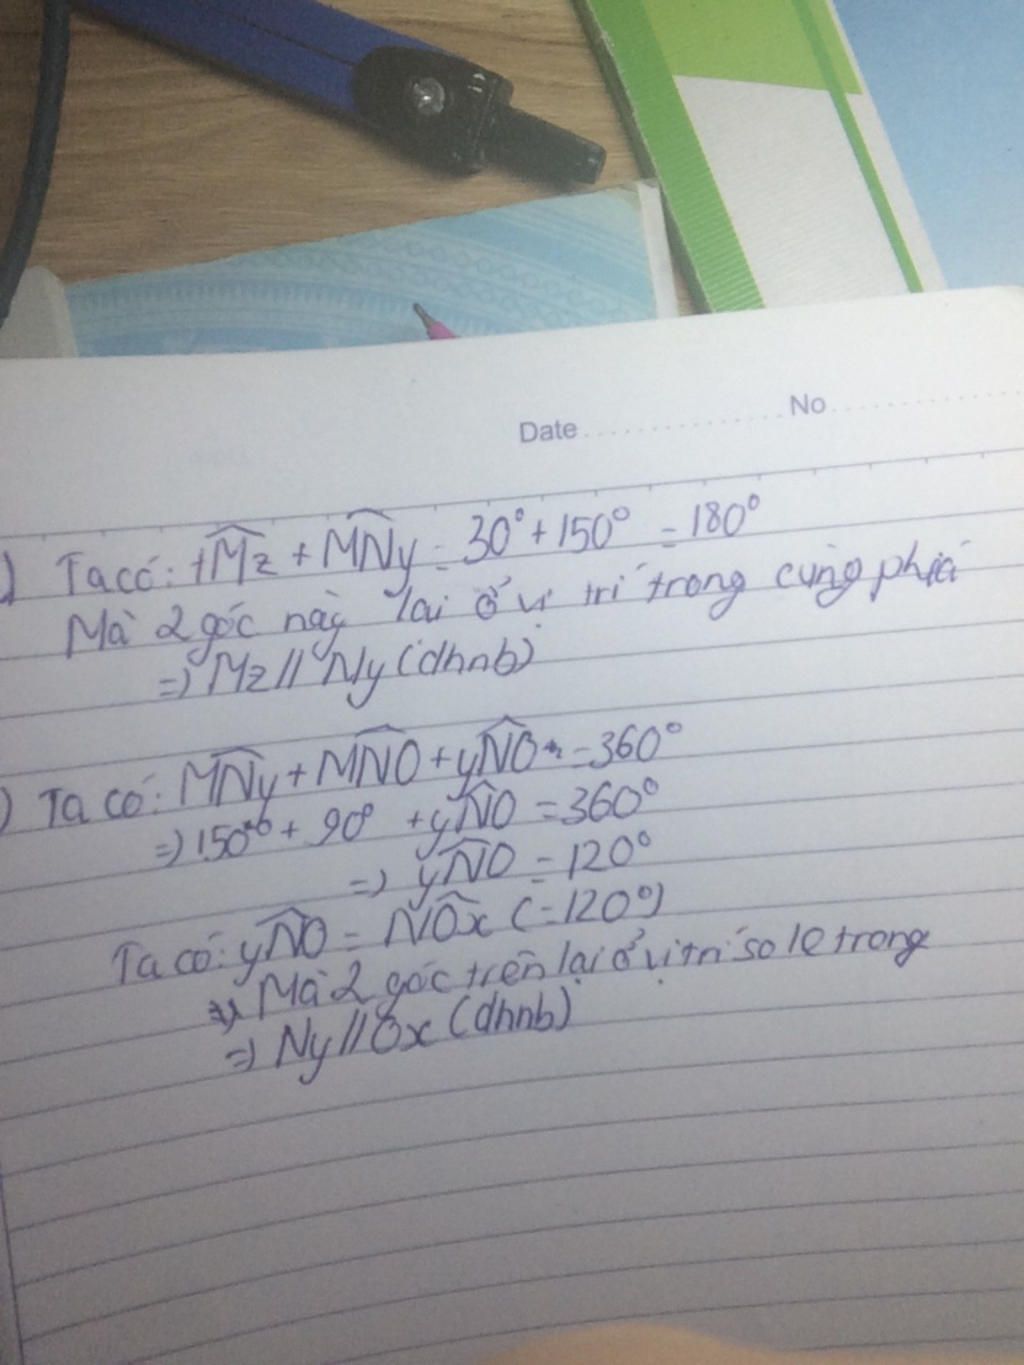 Date .................... No ....................
) Ta có: tMz + MNy = 30° + 150° = 180°
Mà 2 góc này lại ở vị trí trong cùng phía
=) Mz // Ny (dhnb)
) Ta có: MNy + MNO + yNO = 360°
=) 150° + 90° + yNO = 360°
=) yNO = 120°
Ta có: yNO = NOx (=120°)
Mà 2 góc trên lại ở vị trí so le trong
=) Ny // Ox (dhnb)